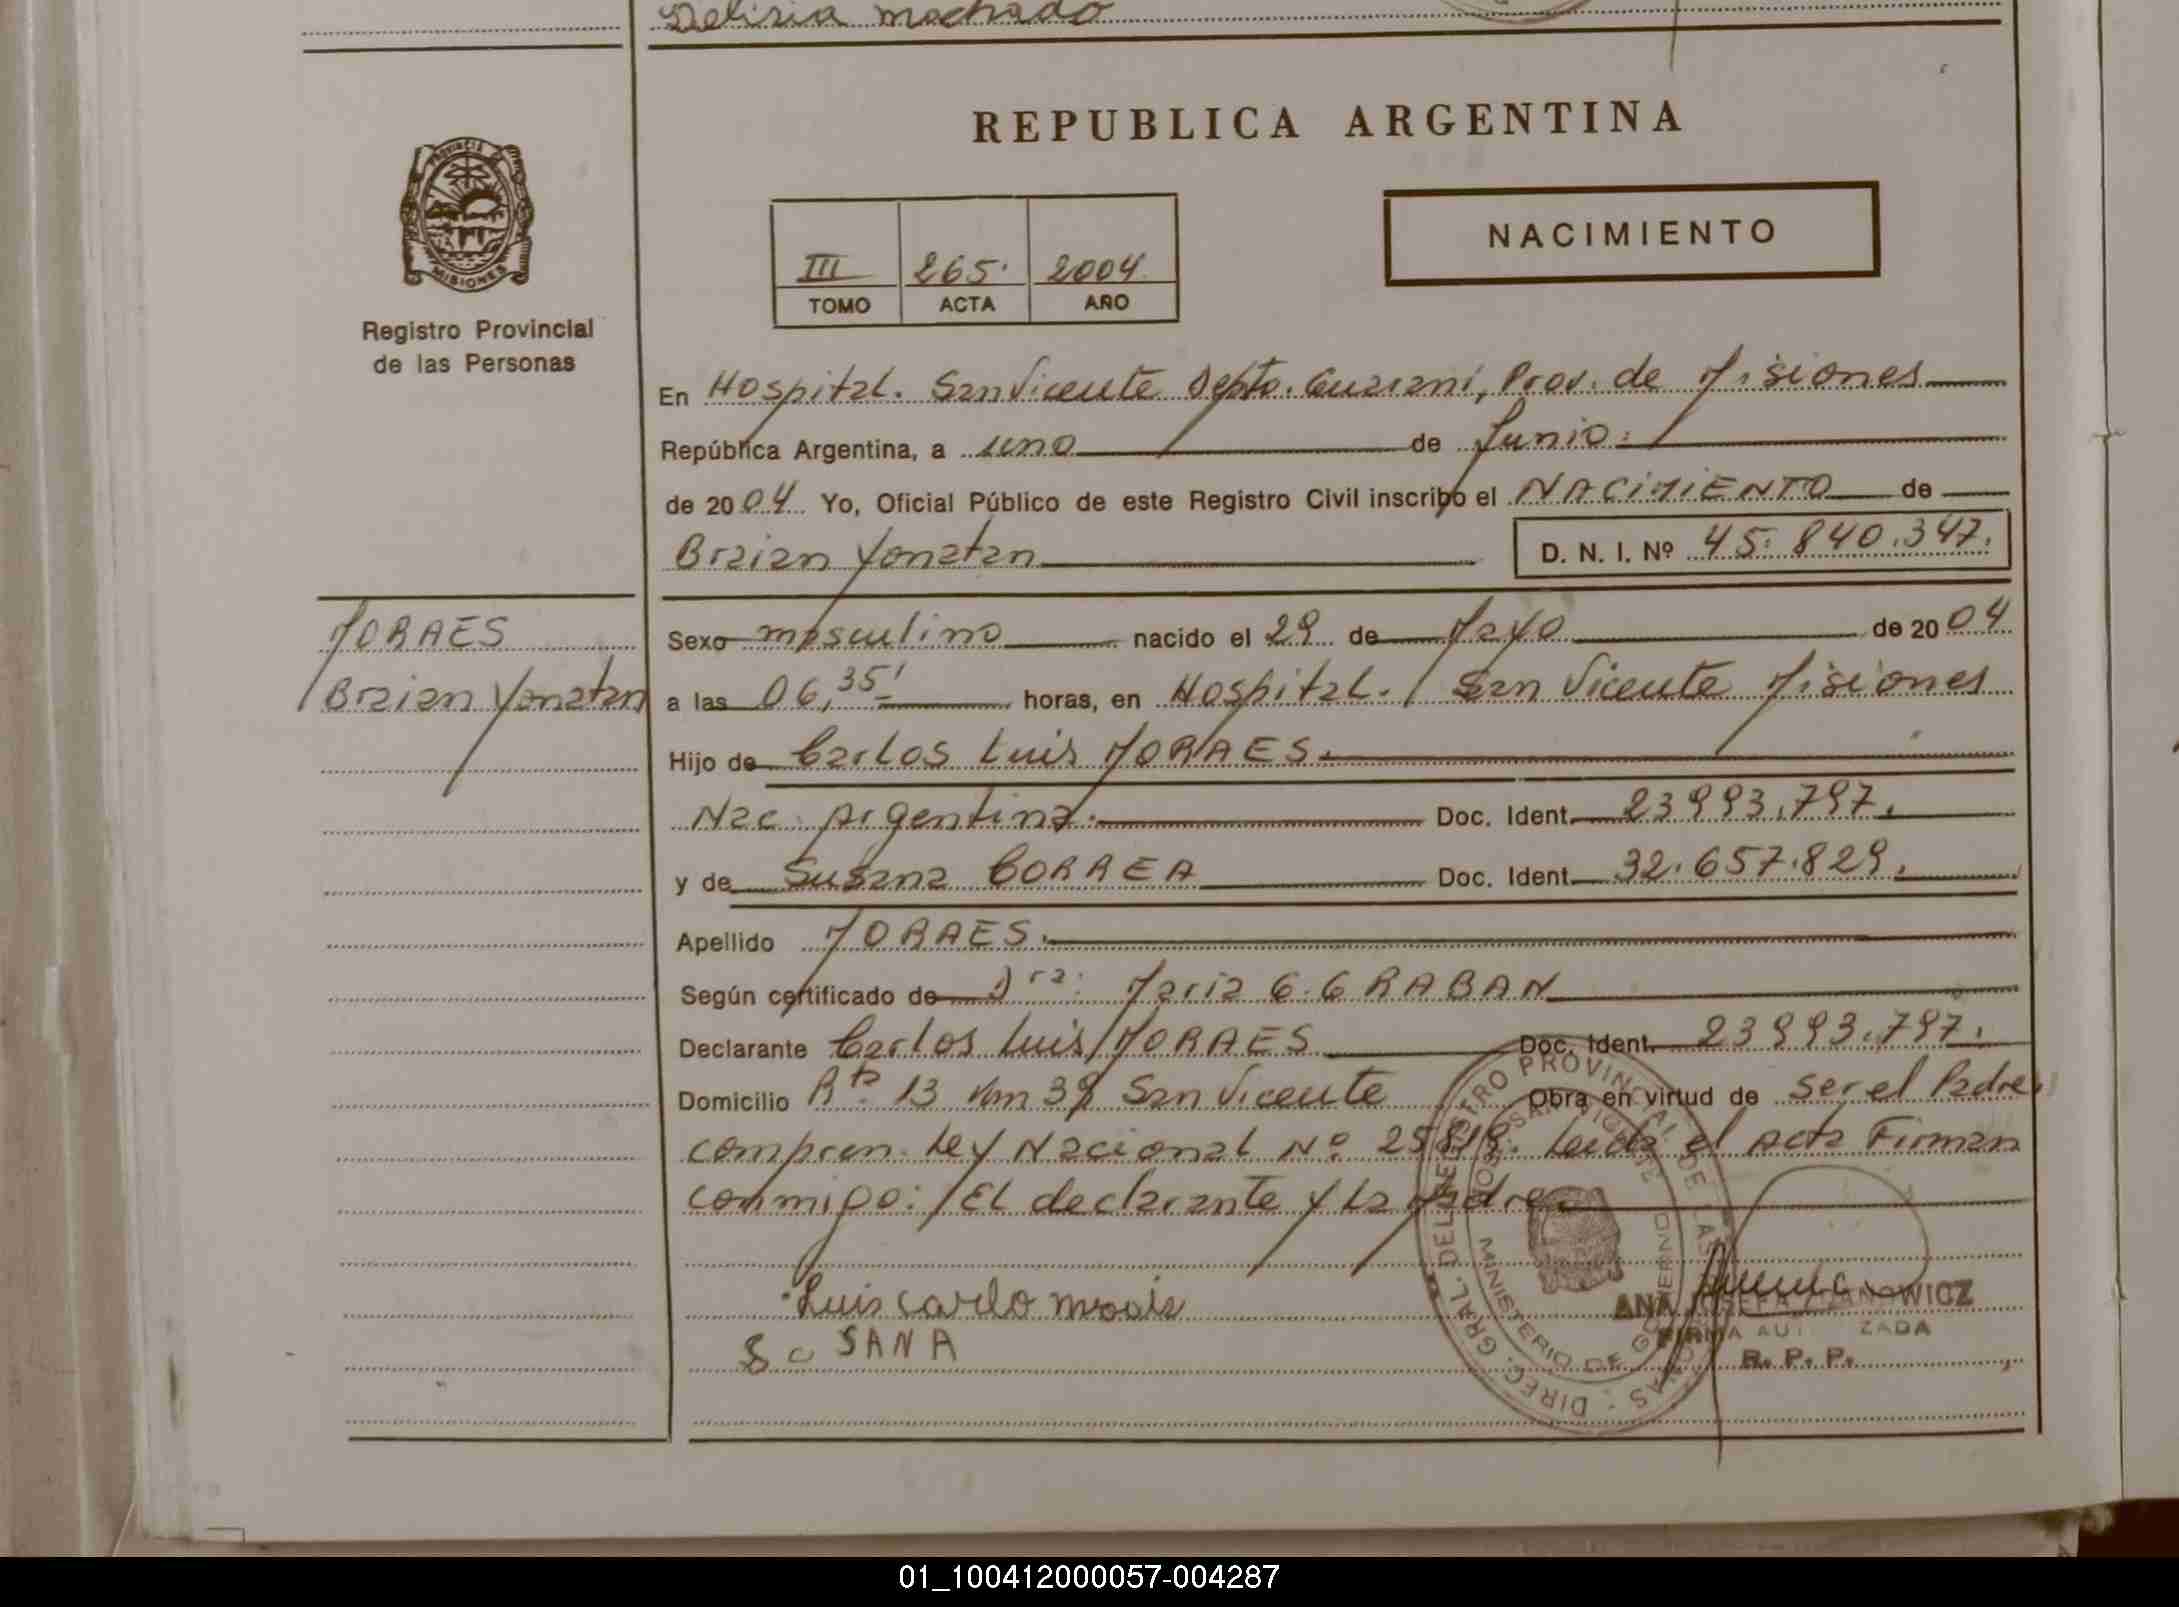 Delisia machado
REPUBLICA ARGENTINA
PROVINCIA DE
MISIONES
Registro Provincial
de las Personas
NACIMIENTO
III 265. 2004
TOMO ACTA AÑO
En Hospital. San Vicente Depto. Guarani, Prov. de Misiones
República Argentina, a uno de Junio.
de 2004 Yo, Oficial Público de este Registro Civil inscribo el NACIMIENTO de
Braian Yonatan D. N. I. Nº 45.840.347.
MORAES
Braian Yonatan
Sexo masculino nacido el 29 de Mayo de 2004
a las 06,35' horas, en Hospital. San Vicente Misiones
Hijo de Carlos Luis MORAES.
Nac. Argentina. Doc. Ident. 23993.797.
y de Susana CORREA Doc. Ident. 32.657.829.
Apellido MORAES.
Según certificado de Dra: Maria G. GRABAN
Declarante Carlos Luis MORAES Doc. Ident. 23993.797.
Domicilio Rta. 13 Km 39 San Vicente Obra en virtud de ser el Padre
compren. Ley Nacional Nº 25819. Leida el acta Firman
conmigo: El declarante y La Madre
Luis carlo
SANA
DIREC. GRAL. DEL REGISTRO PROVINCIAL DE LAS PERSONAS
MINISTERIO DE GOBIERNO
ANA JOSEFA
FIRMA AUTORIZADA
R. P. P.
01_100412000057-004287